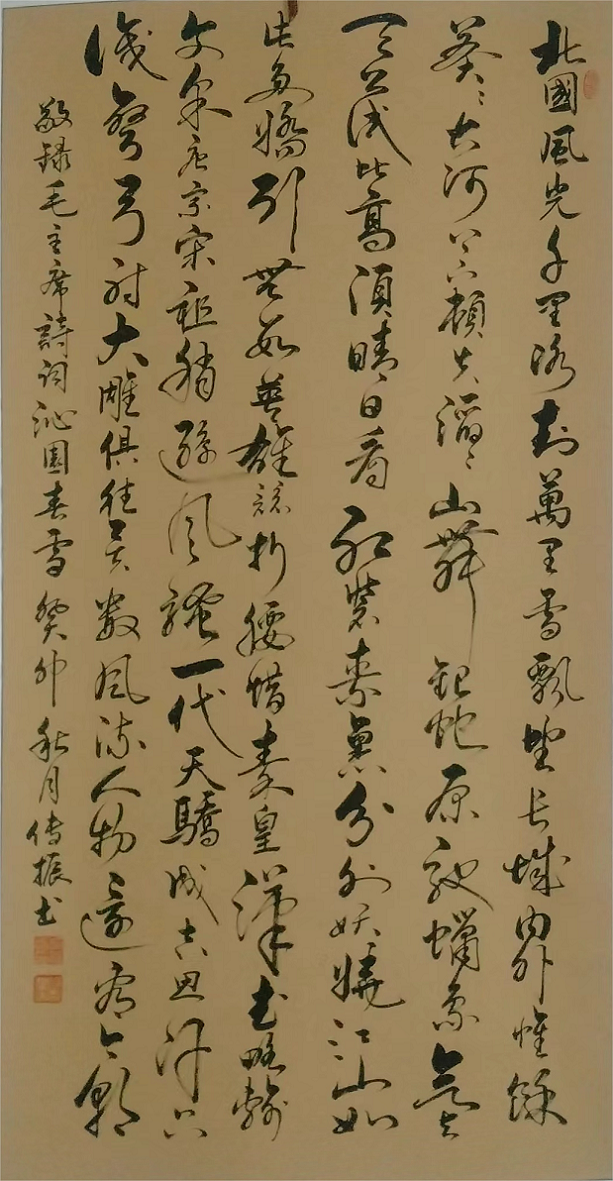 北國風光千里冰封萬里雪飄望长城內外惟餘
莽〻大河上下頓失滔〻山舞銀蛇原馳蠟象欲与
天公試比高須晴日看紅裝素裹分外妖嬈江山如
此多嬌引無數英雄競折腰惜秦皇漢武略輸
文采唐宗宋祖稍遜風騷一代天驕成吉思汗只
識彎弓射大雕俱往矣數風流人物還看今朝
敬録毛主席詩詞沁園春雪癸卯秋月傳振书